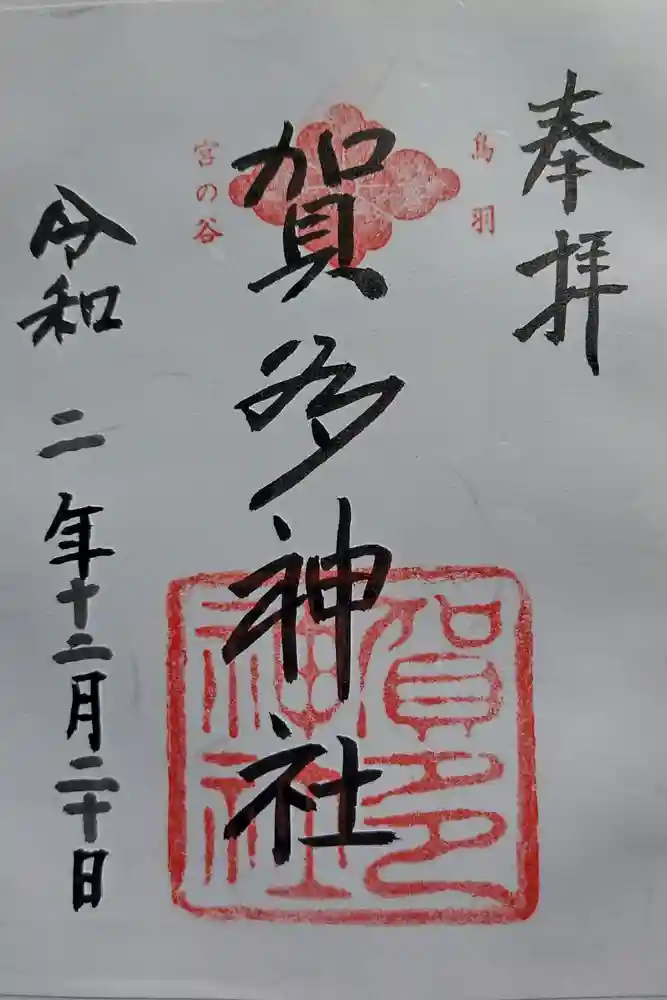 奉拝
鳥羽
賀多神社
宮の谷
賀多
神社
令和二年十二月二十日